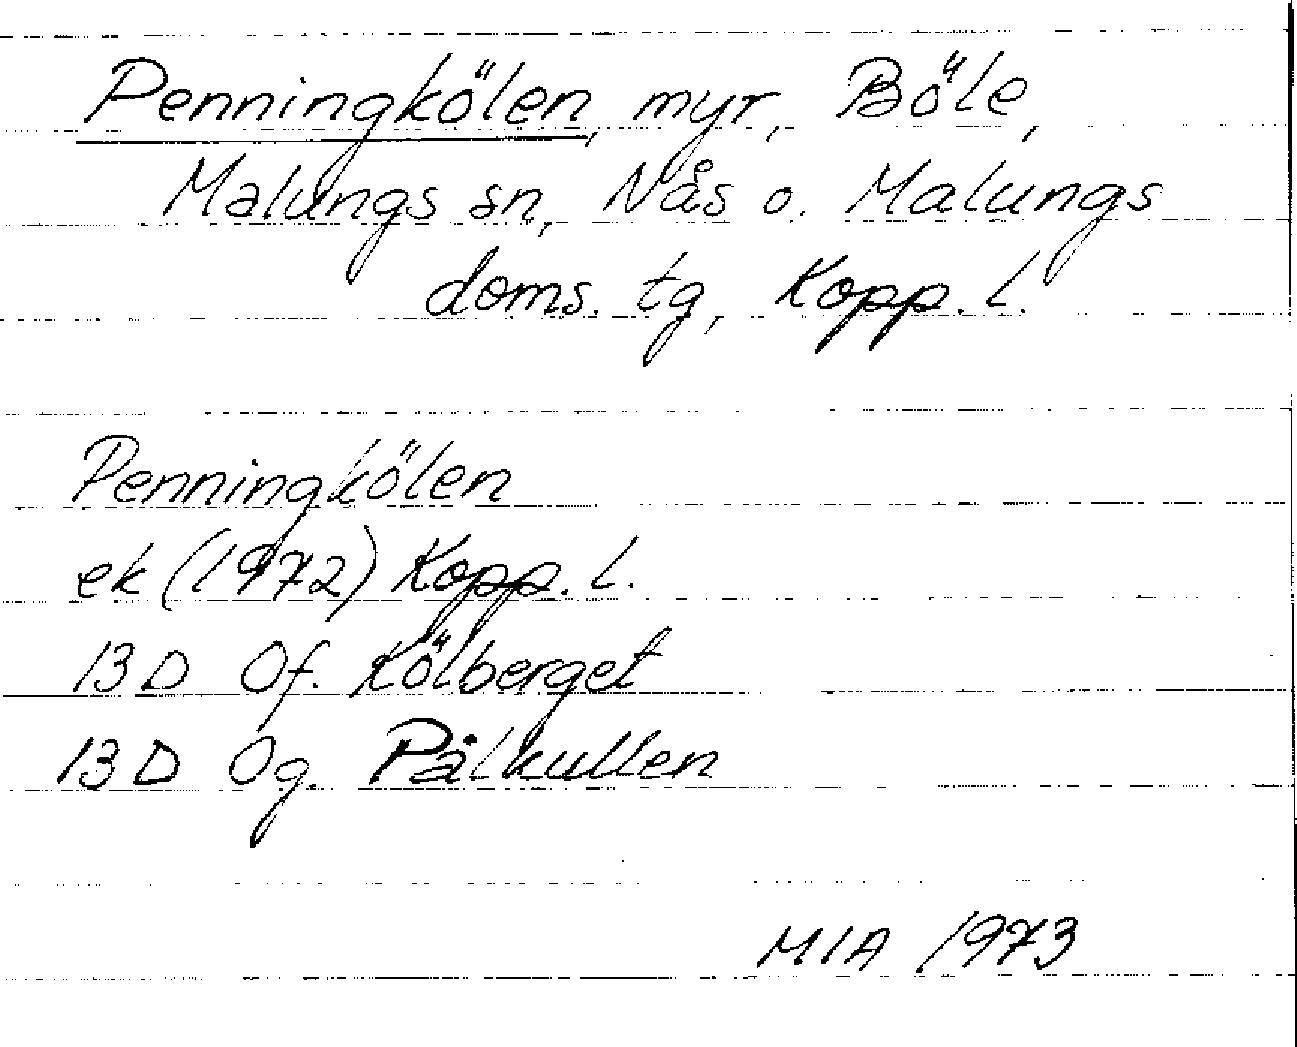 Penningkölen, myr, Böle,
Malungs sn, Nås o. Malungs
doms. tg, Kopp. l.
Penningkölen
ek (1972) Kopp. l.
13 D 0f. Kölberget
13 D 0g. Pålkullen
MIA 1973